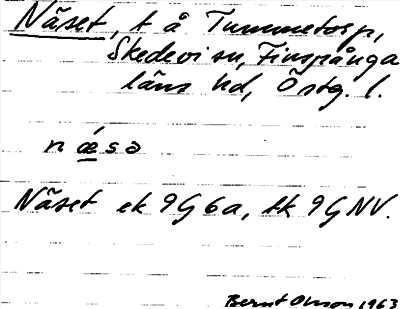 Näset, t å Tummetorp,
Skedevi sn, Finspånga
läns hd, Östg. l.
næ´sə
Näset ek 9G6a, tk 9GNV.
Bernt Olsson 1963